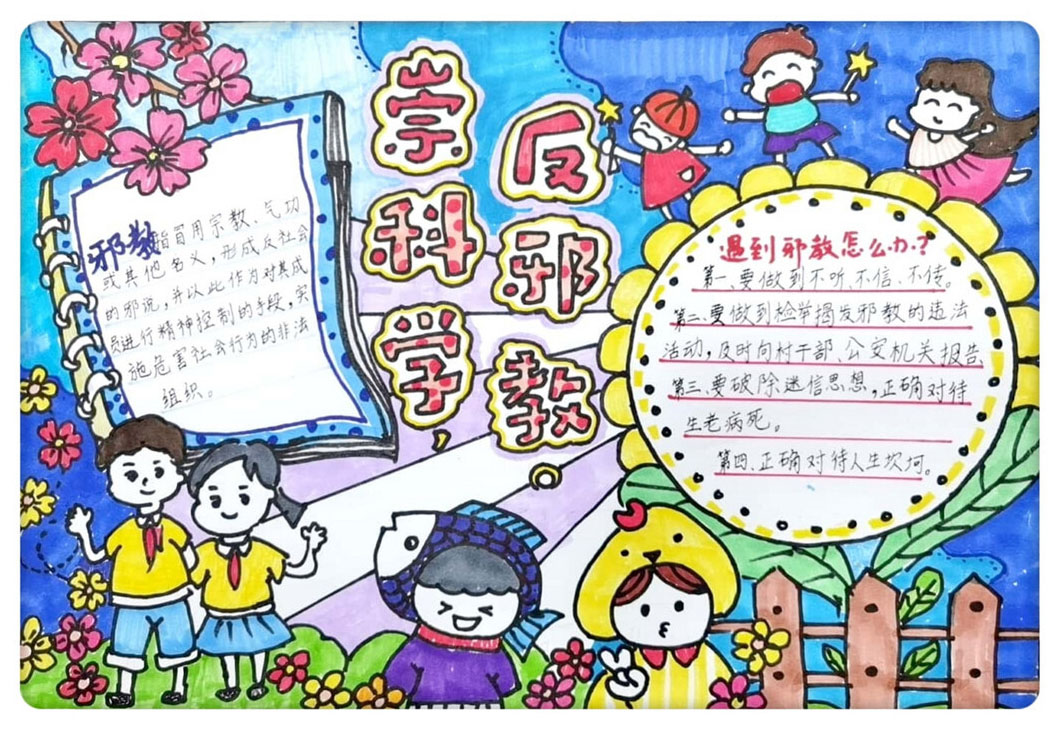 崇科学，
反邪教。
邪教指冒用宗教、气功
或其他名义，形成反社会
的邪说，并以此作为对其成
员进行精神控制的手段，实
施危害社会行为的非法
组织。
遇到邪教怎么办？
第一、要做到不听、不信、不传。
第二、要做到检举揭发邪教的违法
活动，及时向村干部、公安机关报告
第三、要破除迷信思想，正确对待
生老病死。
第四、正确对待人生坎坷。